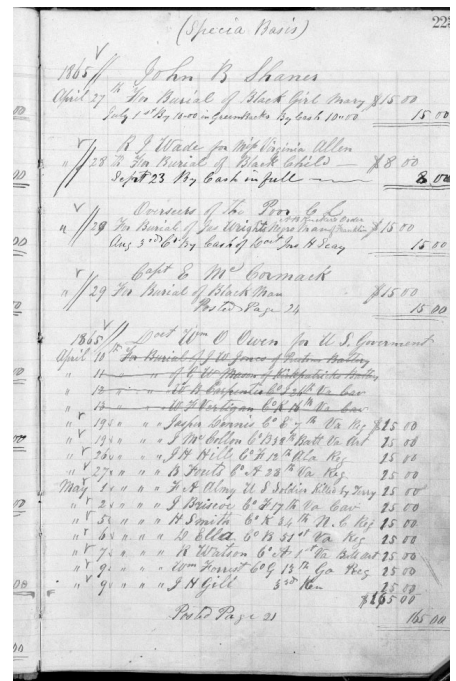 223
(Specia Basis)
1865 John B Shaner
April 27th For Burial of Black Girl Mary $15 00
July 1st By 10=00 in Green Backs By Cash 10=00 15 00
R J Wade for Miss Virginia Allen
" 28 To For Burial of Black Child $8 00
Sept 23 By Cash in full 8 00
Overseers of the Poor C L
" 29 For Burial of Jas Wright Negro Man $15 00
Aug 3rd Cr By Cash of Jno H Seay 15 00
Capt E McCormack
" 29 For Burial of Black Man $15 00
Posted Page 24 15 00
1865 Doct Wm O Owen for U S Goverment
April 10th For Burial of J W Jones of Battery
" 11 " of J W Moon of Kirkpatricks Batty
" 12 " W B Carpenter Co 24th Va Cav
" 13 " W F Vertigan Co K 16th Va Cav
" 19 " " " Jasper Co E 7th Va Reg $25 00
" 19 " " " J McCollon Co B 38th Batt Va Art 25 00
" 26 " " " J H Hill Co F 12th Ala Reg 25 00
" 27 " " " B Fouts Co A 28th Va Reg 25 00
May 1 " " " F A Olmy U S Soldier Killed by Terry 25 00
" 2 " " " J Briscoe Co F 17th Va Cav 25 00
" 5 " " " H Smith Co K 24th N. C Reg 25 00
" 6 " " " D Ella Co B 51st Va Reg 25 00
" 7 " " " R Watson Co A 1st Va Batt Art 25 00
" 9 " " " Wm Forrest Co G 13th Ga Reg 25 00
" 9 " " " J H Gill 3rd 25 00
$165 00
Posted Page 21 165 00